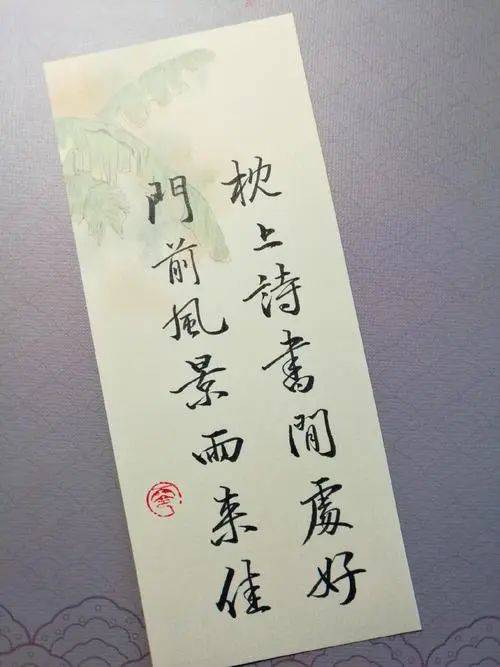 枕上詩書閒處好
門前風景雨来佳